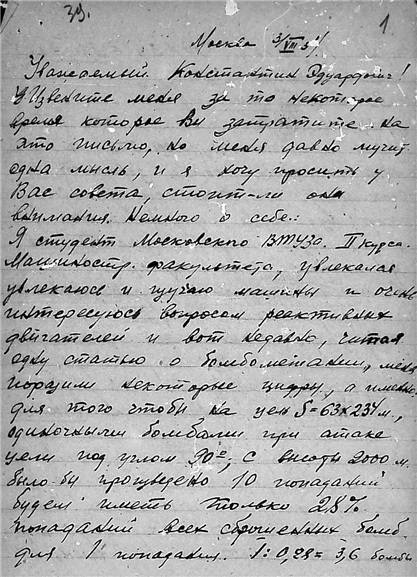 39.
1
Москва 3/VIII 3
Уважаемый Константин Эдуардович!
Извените меня за то некоторое
время которое Вы затратите на
это письмо, но меня давно мучит
одна мысль, и я хочу просить у
Вас совета, стоит-ли она
внимания. Немного о себе.:
Я студент Московского ВТУЗа. II курса.
Машиностр. факультета, увлекался
увлекаюсь и изучаю машины и очень
интересуюсь вопросом реактивных
двигателей и вот недавно, читая
одну статью о бомбометании, меня
поразили некоторые цифры, а именно:
для того чтобы на цель S=63×234 м.,
одиночными бомбами при атаке
цели под углом 90º, с высоты 2000 м.
было бы произведено 10 попаданий
будем иметь только 28%
попаданий всех сброшенных бомб.
для 1 попадания. 1:0,28= 3,6 бомбы